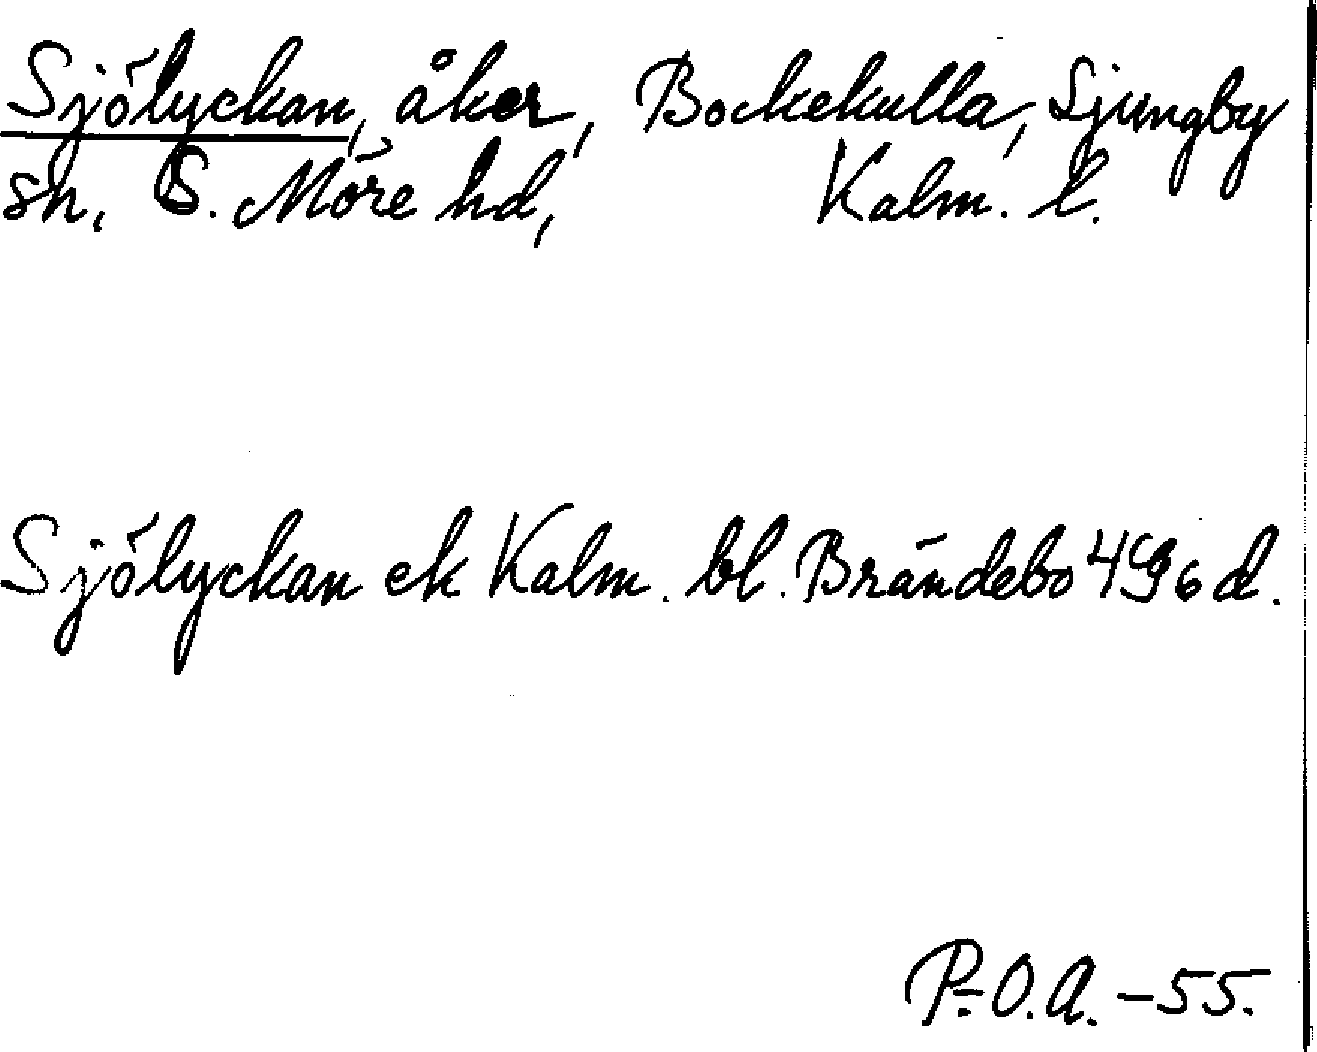 Sjölyckan, åker, Bockekulla, Ljungby
sn, S. Möre hd, Kalm. l.
Sjölyckan ek Kalm. bl. Brändebo 4 9 6 d.
P.-O.A. -55.